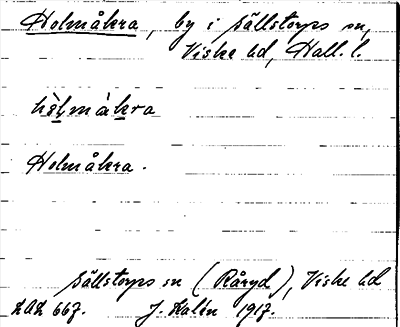 Holmåkra, by i Sällstorps sn,
Viske hd, Hall. l.
hòl̥màkra
Holmåkra.
Sällstorps sn (Råryd), Viske hd
LAL 667. J. Kalén 1917.